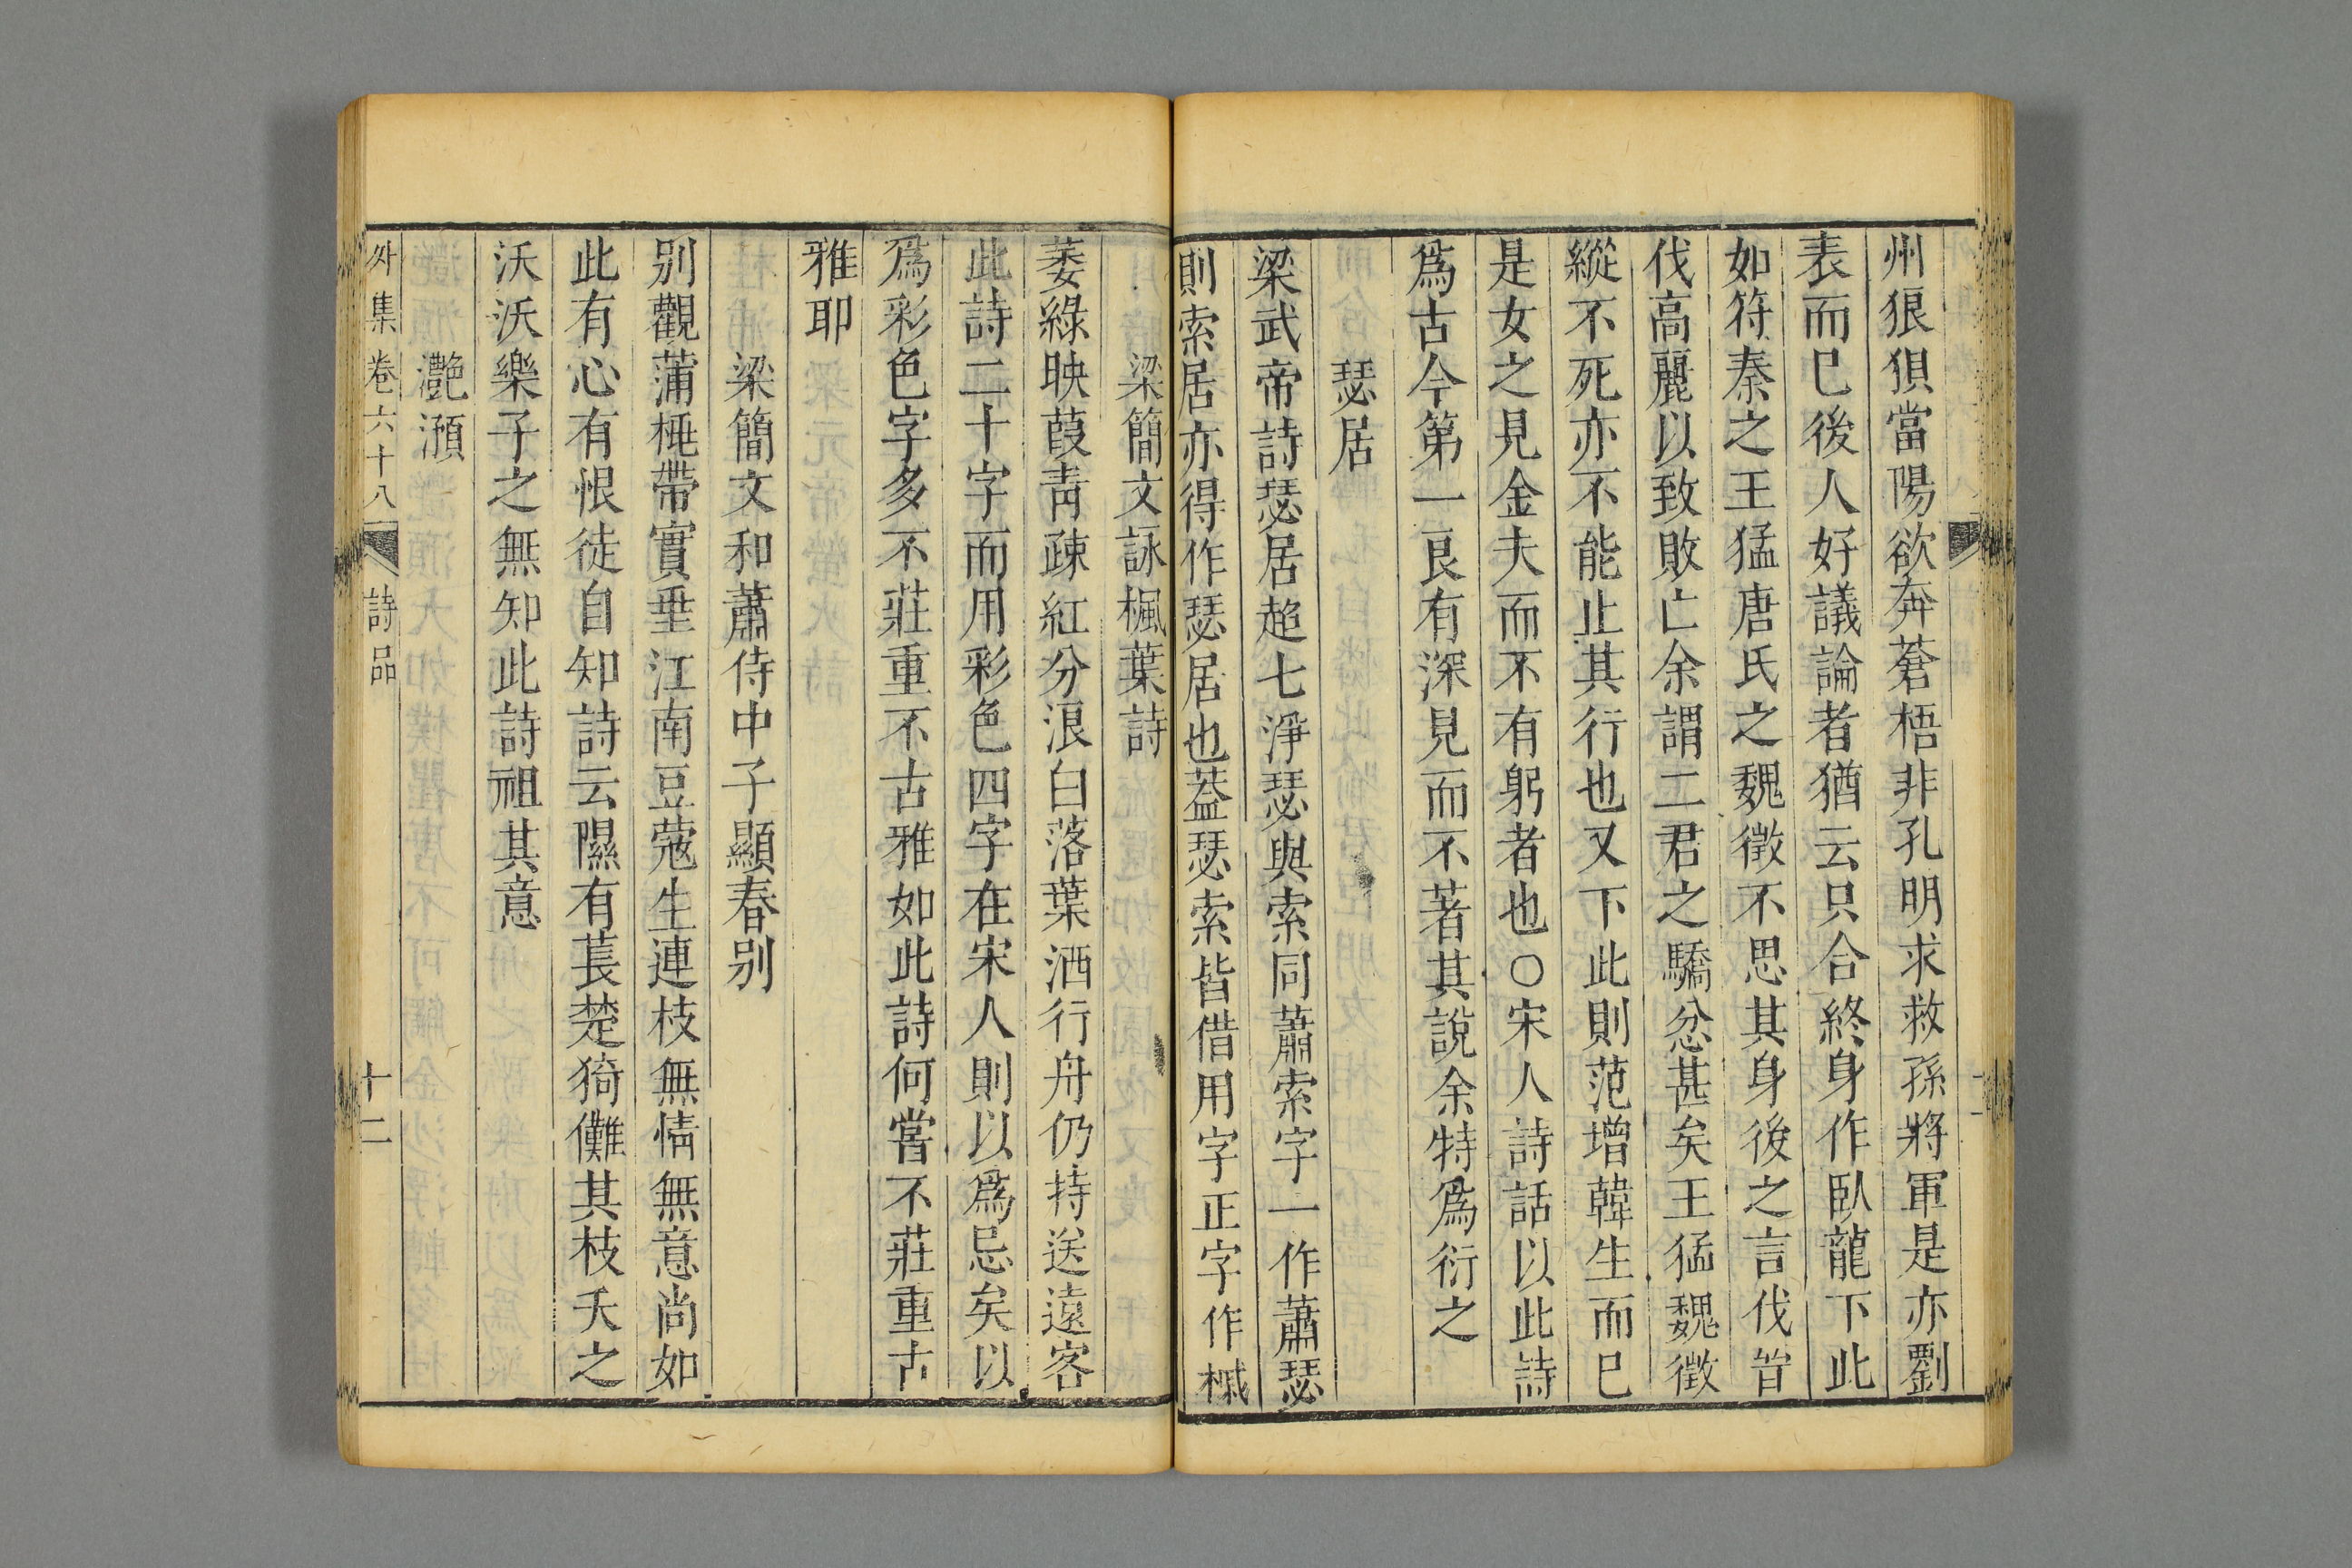 州狼狽當陽欲奔蒼梧非孔明求救孫將軍是亦劉
表而巳後人好議論者猶云只合終身作臥龍下此
如符秦之王猛唐氏之魏徵不思其身後之言伐
伐高麗以致敗亡余謂二君之驕忿甚矣王猛魏徵
縱不死亦不能止其行也又下此則范增韓生而巳
是女之見金夫而不有躬者也○宋人詩話以此詩
爲古今第一良有深見而不著其說余特爲衍之
瑟居
梁武帝詩瑟居超七淨瑟與索同蕭索字一作蕭瑟
則索居亦得作瑟居也葢瑟索皆借用字正字作槭
梁簡文詠楓葉詩
萎綠映葭靑疎紅分浪白落葉洒行舟仍持送遠客
此詩二十字而用彩色四字在宋人則以爲忌矣以
爲彩色字多不莊重不古雅如此詩何嘗不莊重古
雅耶
梁簡文和蕭侍中子顯春别
别觀蒲桃帶實垂江南豆蔻生連枝無情無意尚如
此有心有恨徒自知詩云隰有萇楚猗儺其枝夭之
沃沃樂子之無知此詩祖其意
灔澦
外集卷六十八 詩品 十二